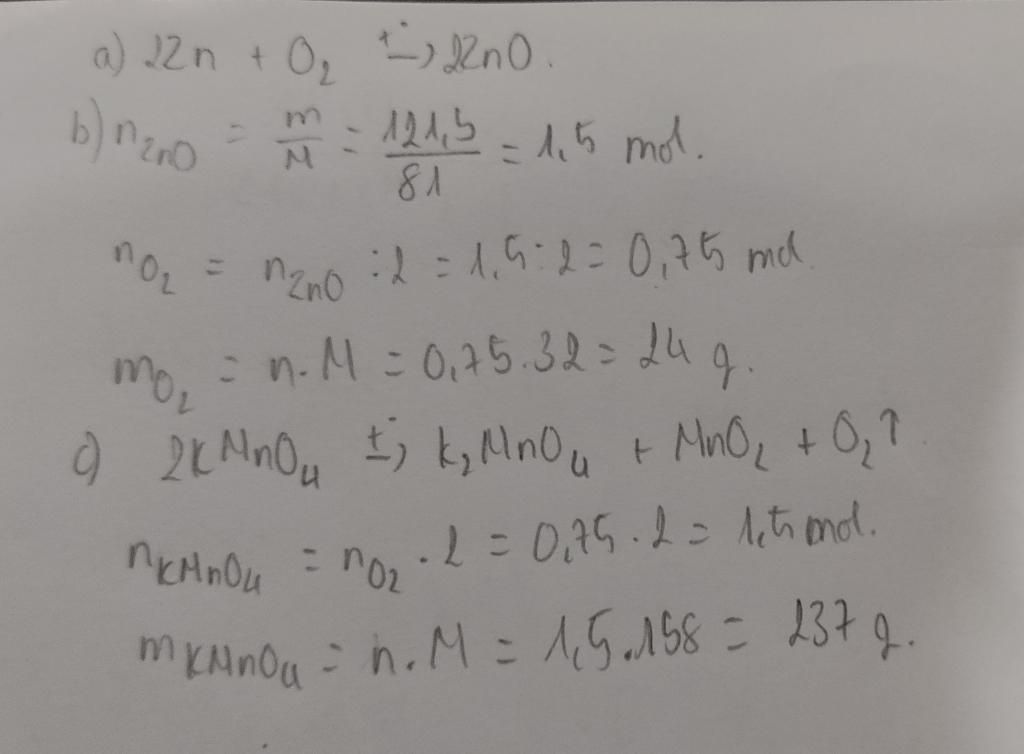 a) 2Zn + O₂ t°→ 2ZnO.
b) n_ZnO = m/M = 121,5/81 = 1,5 mol.
n_O₂ = n_ZnO : 2 = 1,5 : 2 = 0,75 mol.
m_O₂ = n. M = 0,75.32 = 24 g.
c) 2KMnO₄ t°→ K₂MnO₄ + MnO₂ + O₂↑.
n_KMnO₄ = n_O₂ . 2 = 0,75 . 2 = 1,5 mol.
m_KMnO₄ = n. M = 1,5.158 = 237 g.